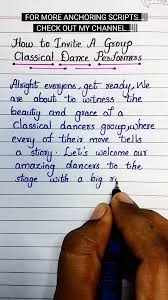 FOR MORE ANCHORING SCRIPTS..
CHECK OUT MY CHANNEL....
How to Invite A Group
Classical Dance Performers
Alright everyone, get ready, We
are about to witness the
beauty and grace of a
Classical dancers group, where
every of their move tells
a story. Let's welcome our
amazing dancers to the
stage with a big